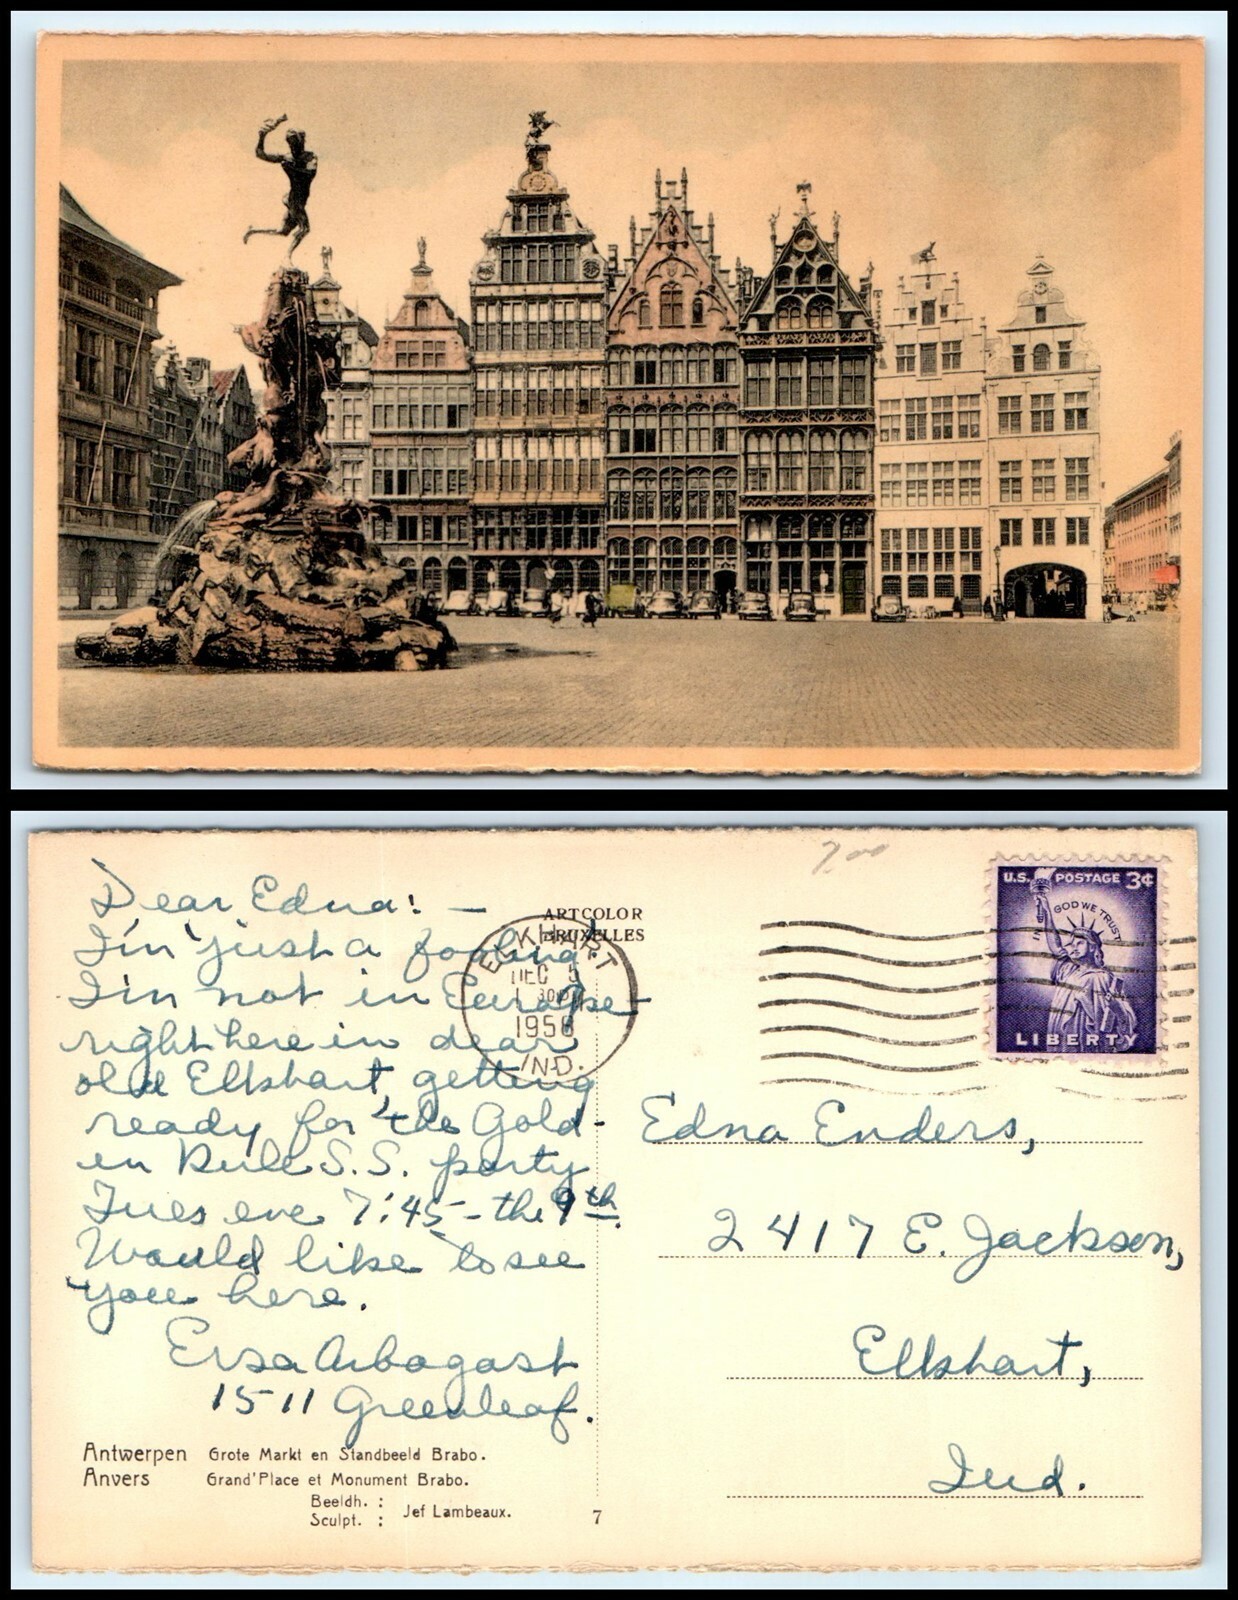 7.00
U.S. POSTAGE 3¢
IN GOD WE TRUST
LIBERTY
ARTCOLOR
BRUXELLES
ELKHART
DEC 5
1958
IND.
Dear Edna: —
I'm just a fooling
I'm not in Europe—
right here in dear
old Elkhart, getting
ready for the Gold-
en Rule S.S. party
Tues eve 7:45 - the 9th.
Would like to see
you here.
Ersa Arbogast
1511 Greenleaf.
Edna Enders,
2417 E. Jackson,
Elkhart,
Ind.
Antwerpen Grote Markt en Standbeeld Brabo.
Anvers Grand'Place et Monument Brabo.
Beeldh. :
Sculpt. : Jef Lambeaux.
7